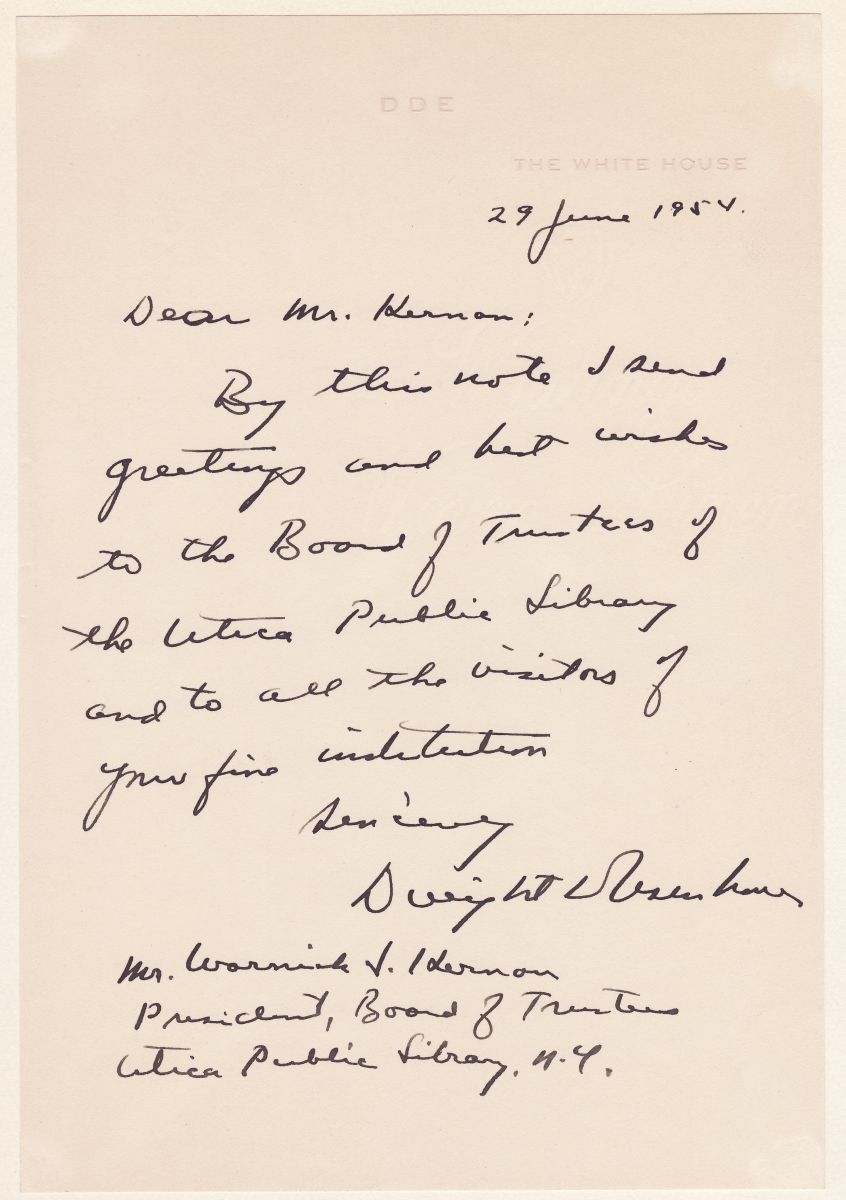 DDE
THE WHITE HOUSE
29 June 1954.
Dear Mr. Kernan:
By this note I send
greetings and best wishes
to the Board of Trustees of
the Utica Public Library
and to all the visitors of
your fine institution
Sincerely
Dwight D Eisenhower
Mr. Warnick J. Kernan
President, Board of Trustees
Utica Public Library, N.Y.